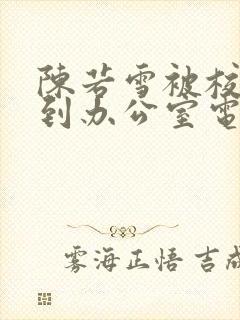 陳若雪被校
到办公室電
雾海正悟 吉成